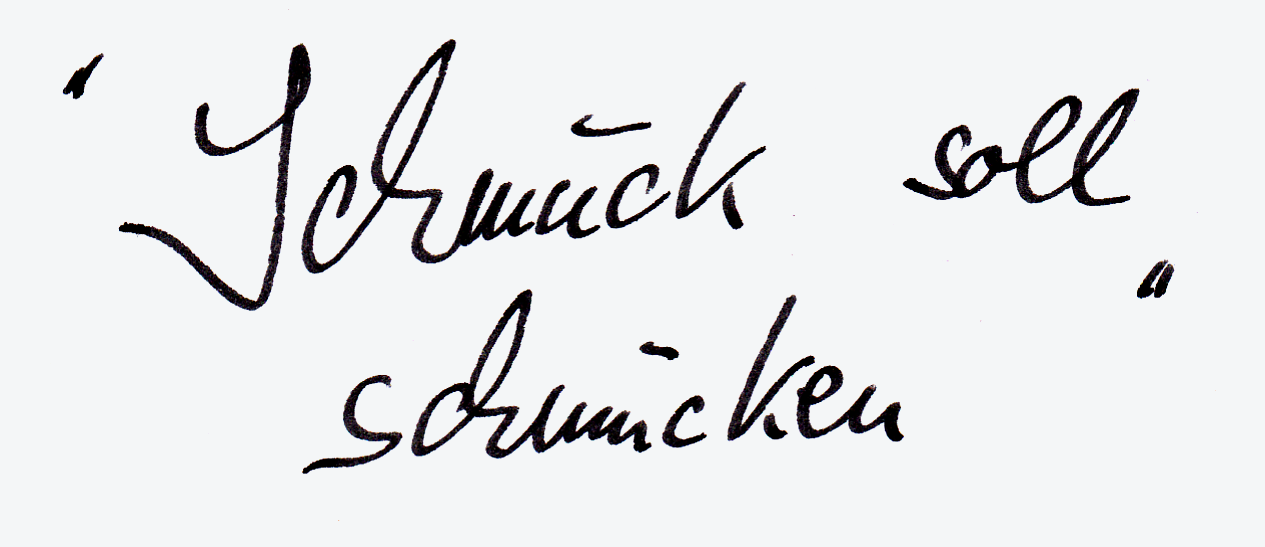 "Schmuck soll
schmücken"